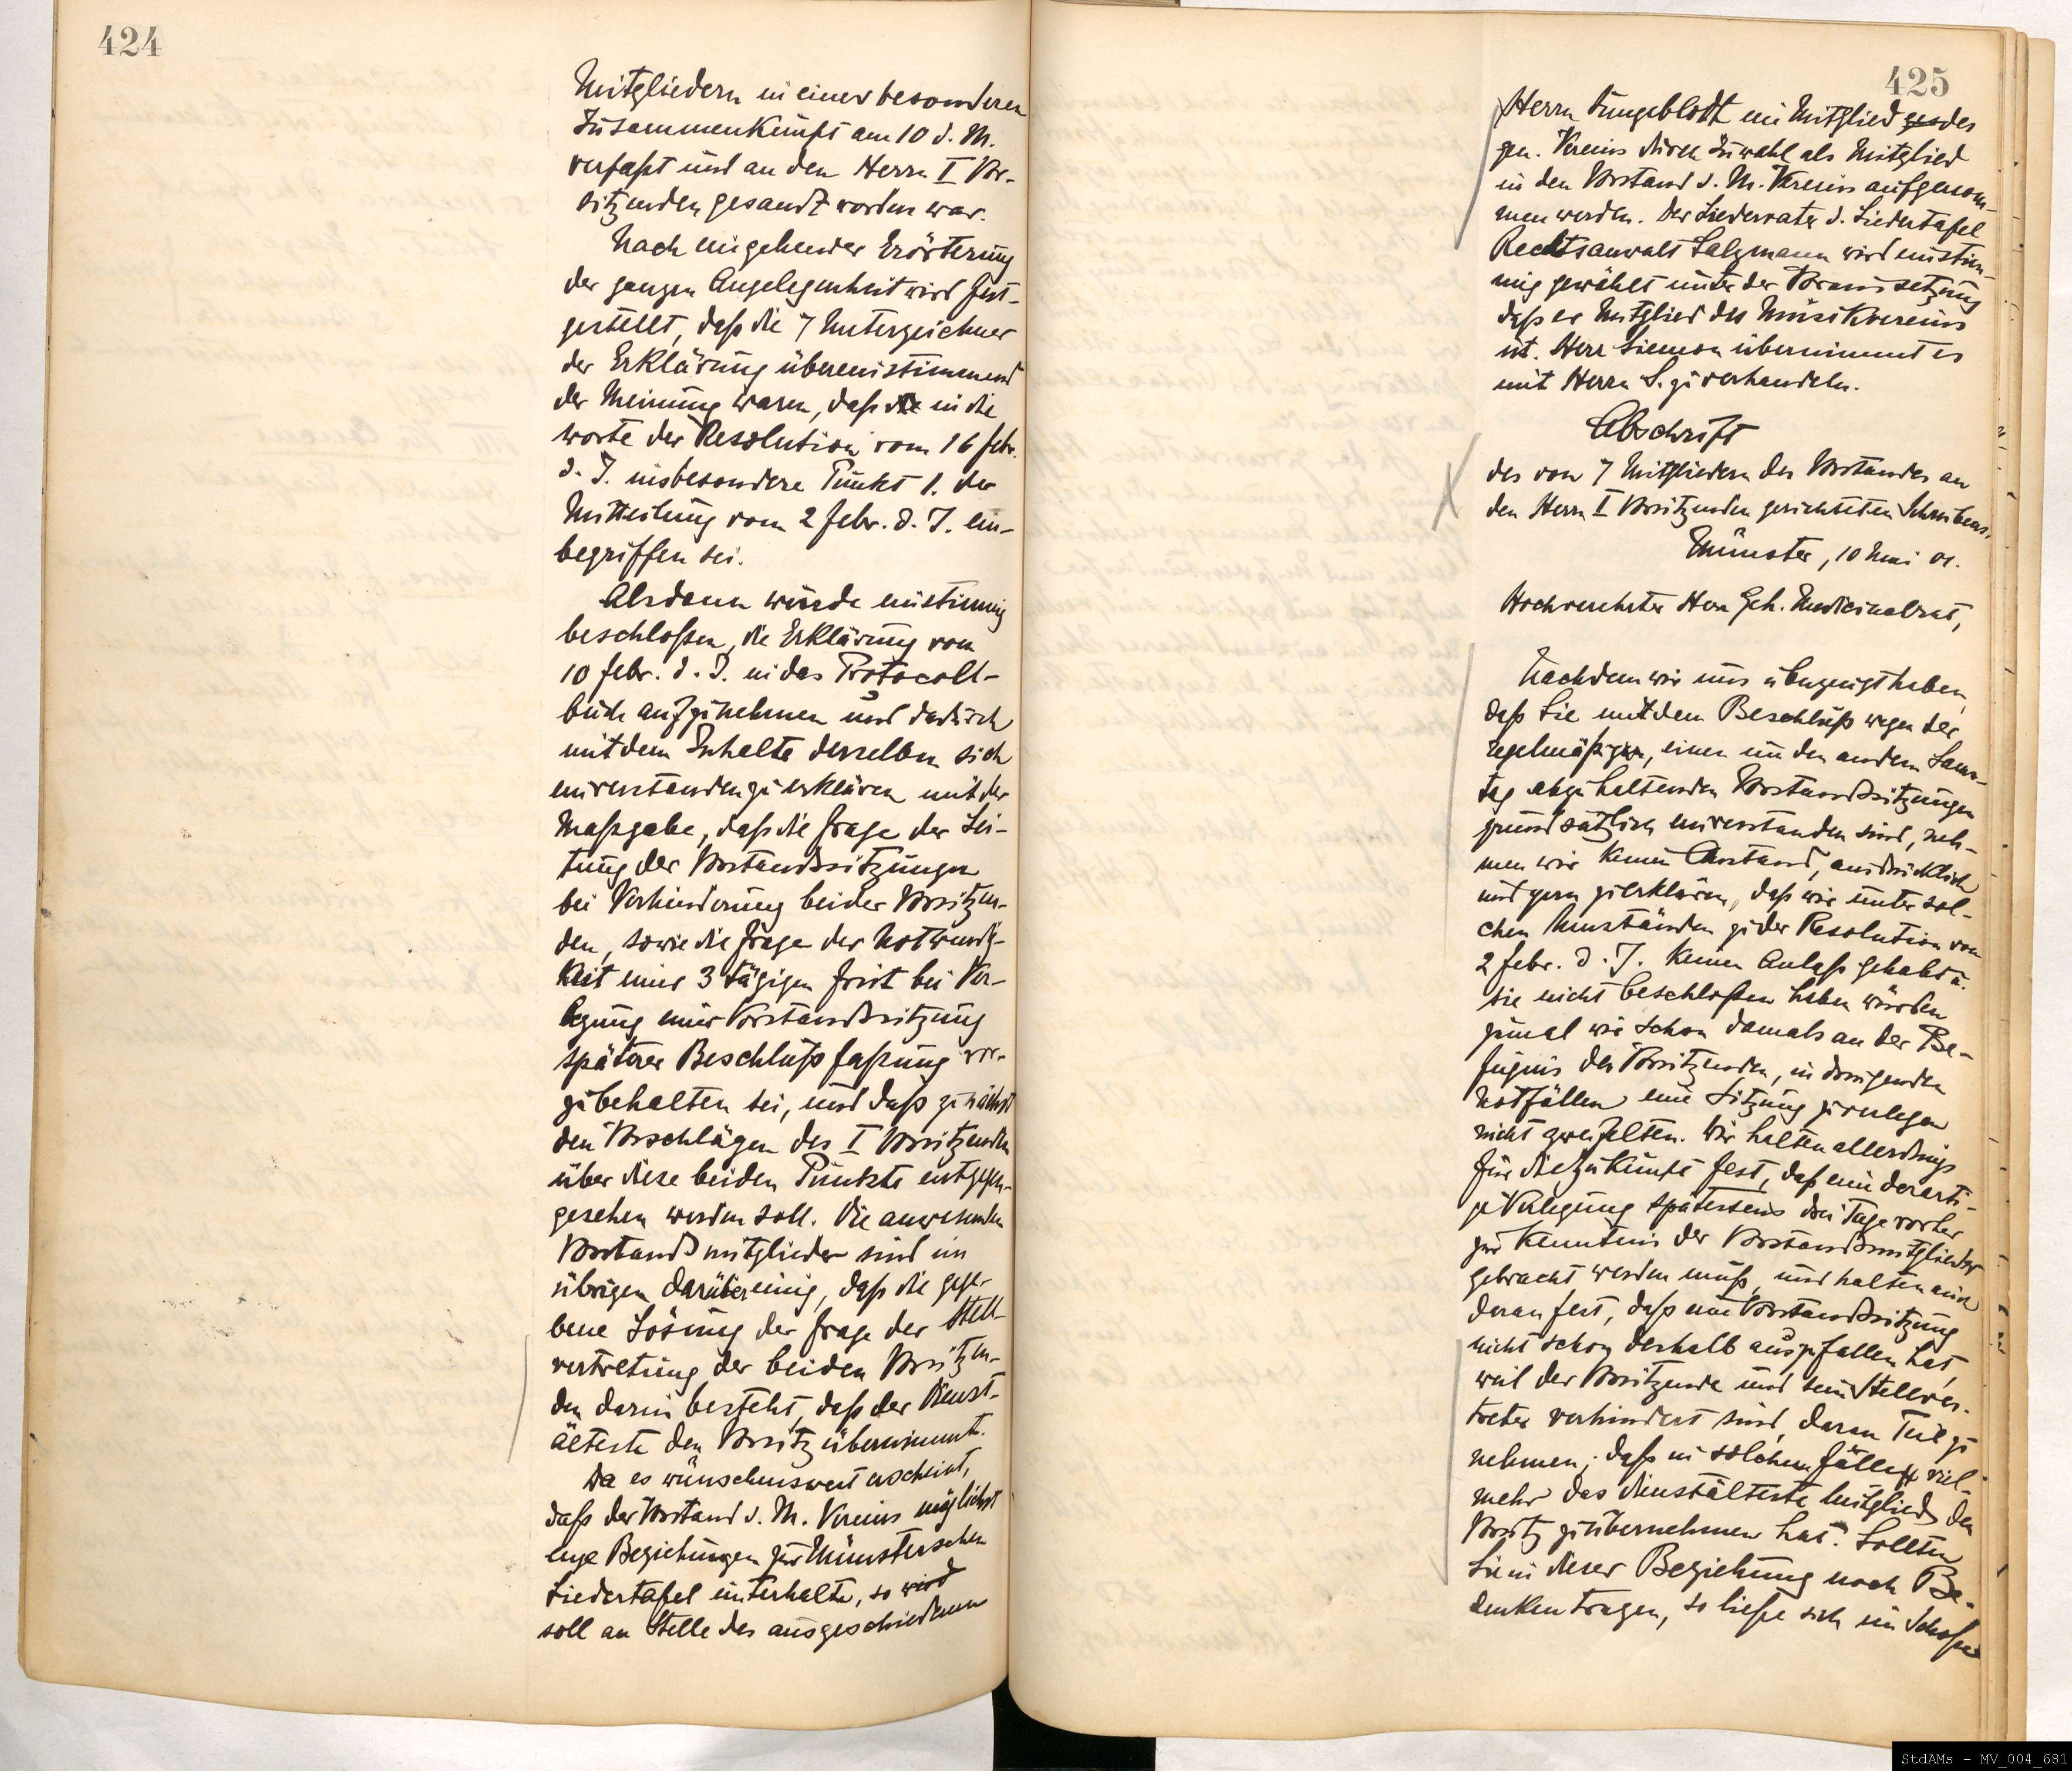 424
Mitgliedern in einer besonderen
Zusammenkunft am 10 d. M.
verfaßt und an den Herrn I Vor-
sitzenden gesandt worden war.
Nach eingehender Erörterung
der ganzen Angelegenheit wird fest-
gestellt, daß die 7 Unterzeichner
der Erklärung übereinstimmend
der Meinung waren, daß in die
Worte der Resolution vom 16 Febr.
d. J. insbesondere Punkt 1. der
Mitteilung vom 2 Febr. d. J. ein-
begriffen sei.
Alsdann wurde einstimmig
beschloßen, die Erklärung vom
10 Febr. d. J. in das Protocoll-
buch aufzunehmen und dadurch
mit dem Inhalte derselben sich
einverstanden zu erklären mit der
Maßgabe, daß die Frage der Lei-
tung der Vorstandssitzungen
bei Verhinderung beider Vorsitzen-
den, sowie die Frage der Notwendig-
keit einer 3 tägigen Frist bei Ver-
legung einer Vorstandssitzung
späterer Beschlußfaßung vor-
zubehalten sei, und daß zunächst
den Vorschlägen des I Vorsitzenden
über diese beiden Punkte entgegen-
gesehen werden soll. Die anwesenden
Vorstandsmitglieder sind im
übrigen darüber einig, daß die gege-
bene Lösung der Frage der Stell-
vertretung der beiden Vorsitzen-
den darin besteht, daß der Dienst-
älteste den Vorsitz übernimmt.
Da es wünschenswert erscheint,
daß der Vorstand d. M. Vereins möglichst
enge Beziehungen zur Münsterschen
Liedertafel unterhalte, so wird
soll an Stelle des ausgeschiedenen
425
Herrn Jungeblodt ein Mitglied des
gen. Vereins durch Zuwahl als Mitglied
in den Vorstand d. M. Vereins aufgenom-
men werden. Der Liedervater d. Liedertafel
Rechtsanwalt Salzmann wird einstim-
mig gewählt unter der Voraussetzung
daß er Mitglied des Musikvereins
ist. Herr Siemon übernimmt es
mit Herrn S. zu verhandeln.
Abschrift
des von 7 Mitgliedern des Vorstandes an
den Herrn I Vorsitzenden gerichteten Schreibens.
Münster, 10 Mai 01.
Hochverehrter Herr Geh. Medicinalrat,
Nachdem wir uns überzeugt haben,
daß Sie mit dem Beschluß wegen der
regelmäßigen, einen um den andern Sams-
tag abzuhaltenden Vorstandssitzungen
grundsätzlich einverstanden sind, neh-
men wir keinen Anstand, ausdrücklich
und gern zu erklären, daß wir unter sol-
chen Umständen zu der Resolution vom
2 Febr. d. J. keinen Anlaß gehabt u.
sie nicht beschloßen haben würden
zumal wir schon damals an der Be-
fugnis des Vorsitzenden, in dringenden
Notfällen eine Sitzung zu verlegen
nicht zweifelten. Wir halten allerdings
für die Zukunft fest, daß eine derarti-
ge Verlegung spätestens drei Tage vorher
zur Kenntnis der Vorstandsmitglieder
gebracht werden muß, und halten auch
daran fest, daß eine Vorstandssitzung
nicht schon deshalb auszufallen hat,
weil der Vorsitzende und sein Stellver-
treter verhindert sind, daran Teil zu
nehmen; daß in solchem Falle viel-
mehr das dienstälteste Mitglied den
Vorsitz zu übernehmen hat. Sollten
Sie in dieser Beziehung noch Be-
denken tragen, so ließe sich im Schoße
StdAMs - MV_004_681